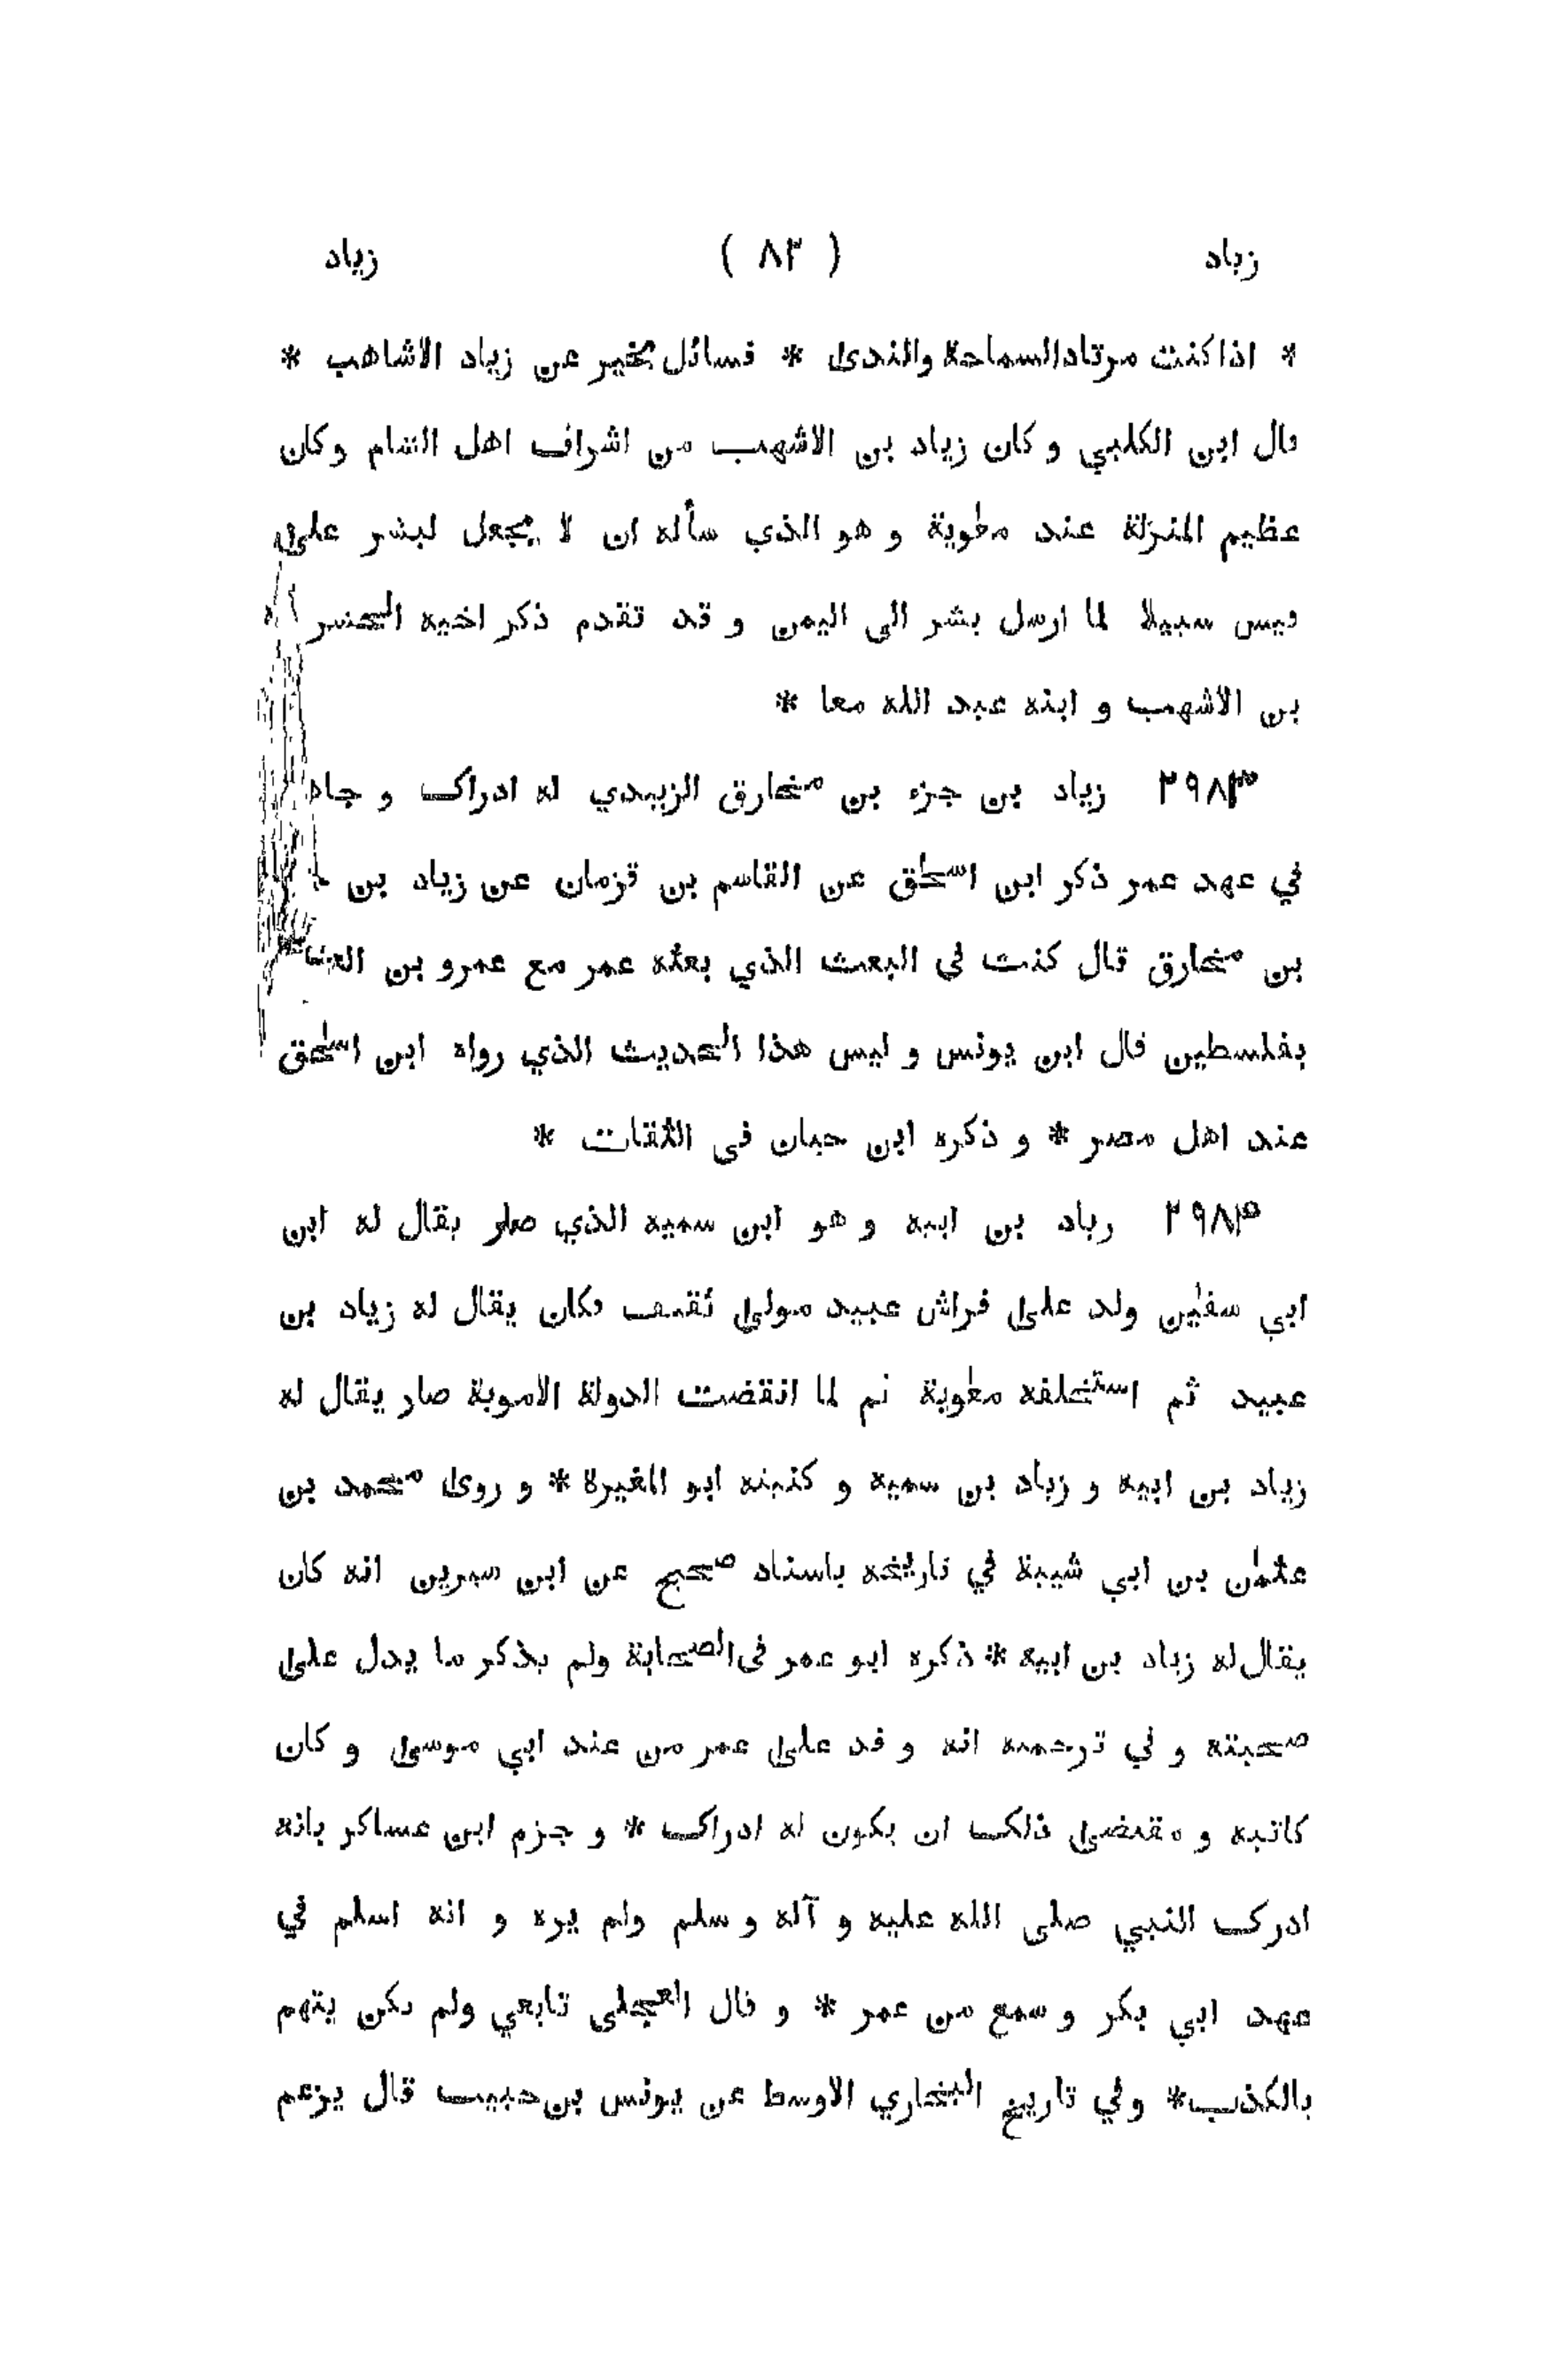 زياد ( ٨٣ ) زياد
* اذا كنت مرتاد السماحة والندى * فسائل بخير عن زياد الاشاهب *
قال ابن الكلبي و كان زياد بن الاشهب من اشراف اهل الشام وكان
عظيم المنزلة عند معٰوية و هو الذي سأله ان لا يجعل لبشر على
قيس سبيلا لما ارسل بشر الى اليمن و قد تقدم ذكر اخيه
بن الاشهب و ابنه عبد الله معا *
٢٩٨٣ زياد بن جزء بن مخارق الزبيدي له ادراك و
في عهد عمر ذكر ابن اسحٰق عن القاسم بن قزمان عن زياد بن
بن مخارق قال كنت في البعث الذي بعثه عمر مع عمرو بن
بفلسطين قال ابن يونس و ليس هذا الحديث الذي رواه ابن اسحٰق
عند اهل مصر * و ذكره ابن حبان في الثقات *
٢٩٨٤ زياد بن ابيه و هو ابن سميه الذي صار يقال له ابن
ابي سفيٰن ولد على فراش عبيد مولى ثقيف فكان يقال له زياد بن
عبيد ثم استخلفه معٰوية ثم لما انقضت الدولة الاموية صار يقال له
زياد بن ابيه و زياد بن سميه و كنيته ابو المغيرة * و روى محمد بن
عثمٰن بن ابي شيبة في تاريخه باسناد صحيح عن ابن سيرين انه كان
يقال له زياد بن ابيه * ذكره ابو عمر في الصحابة ولم يذكر ما يدل على
صحبته و في ترجمته انه و فد على عمر من عند ابي موسى و كان
كاتبه و مقتضى ذلك ان يكون له ادراك * و جزم ابن عساكر بانه
ادرك النبي صلى الله عليه و آله و سلم ولم يره و انه اسلم في
عهد ابي بكر و سمع من عمر * و قال العجلى تابعي ولم يكن يتهم
بالكذب * وفي تاريخ البخاري الاوسط عن يونس بن حبيب قال يزعم